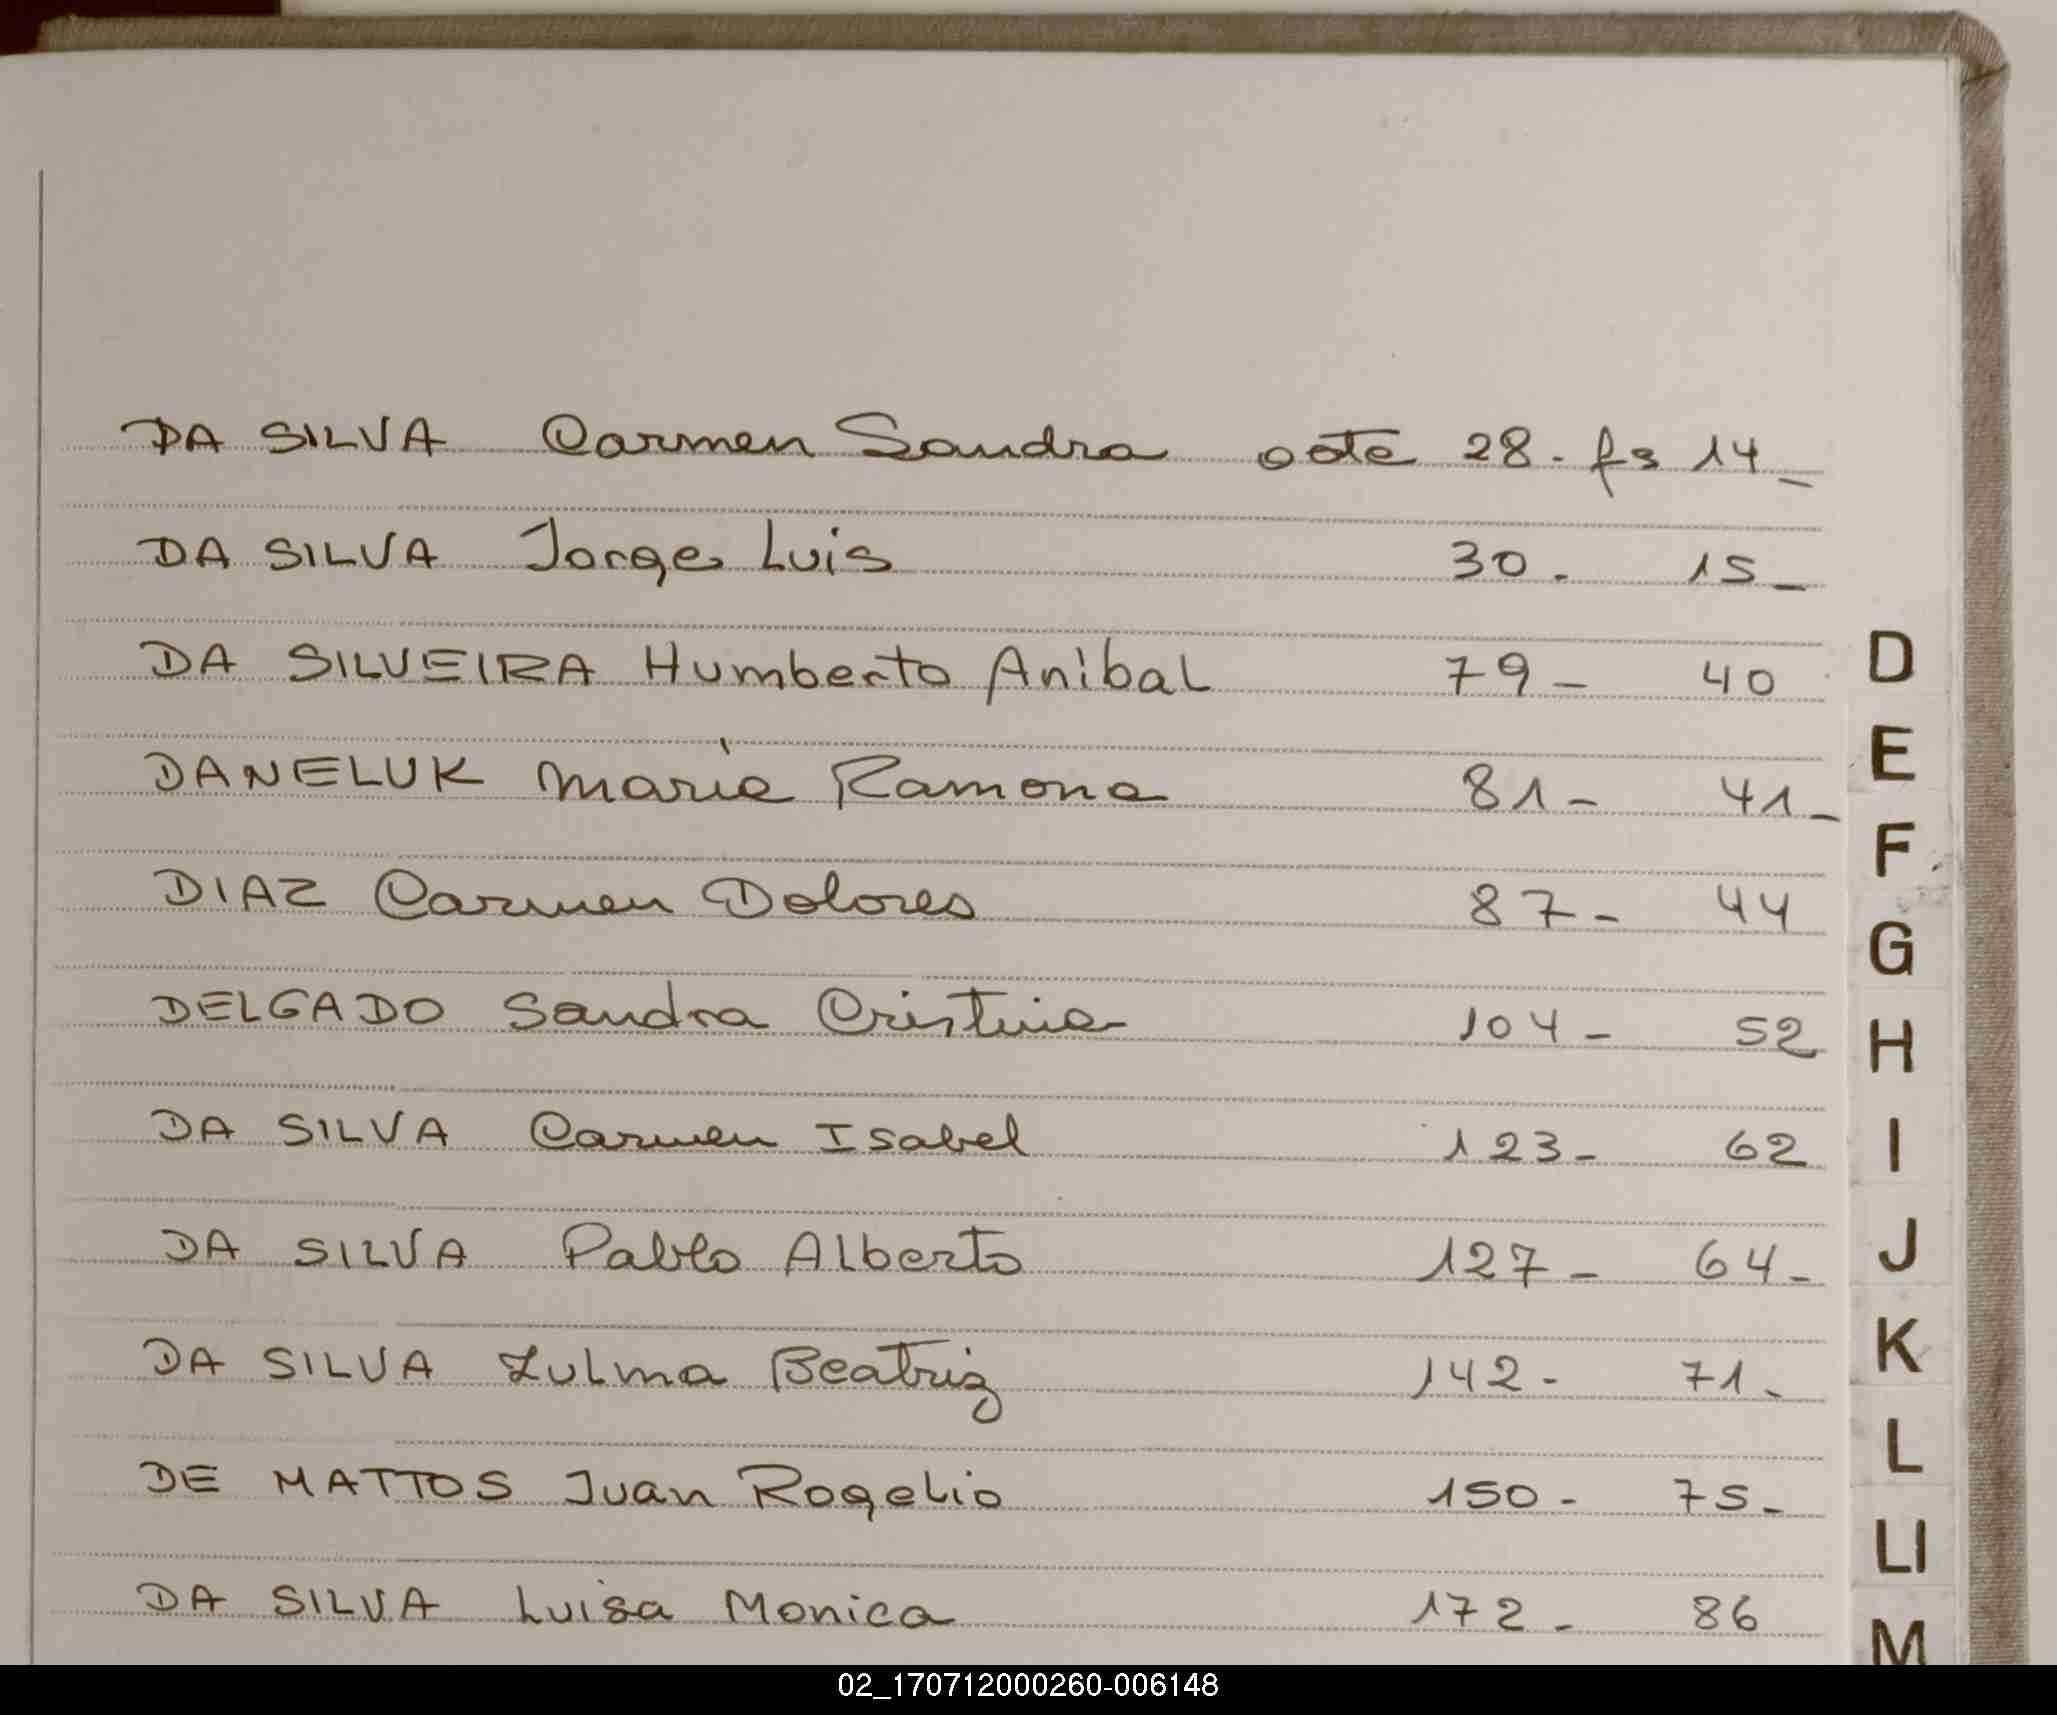 DA SILVA Carmen Sandra acta 28. fs 14_
DA SILVA Jorge Luis 30. 15_
DA SILVEIRA Humberto Anibal 79_ 40
D
DANELUK Maria Ramona 81_ 41_
E
F
DIAZ Carmen Dolores 87_ 44
G
DELGADO Sandra Cristina 104_ 52
H
DA SILVA Carmen Isabel 123_ 62
I
DA SILVA Pablo Alberto 127_ 64_
J
DA SILVA Zulma Beatriz 142- 71_
K
L
DE MATTOS Juan Rogelio 150- 75_
Ll
DA SILVA Luisa Monica 172_ 86
M
02_170712000260-006148